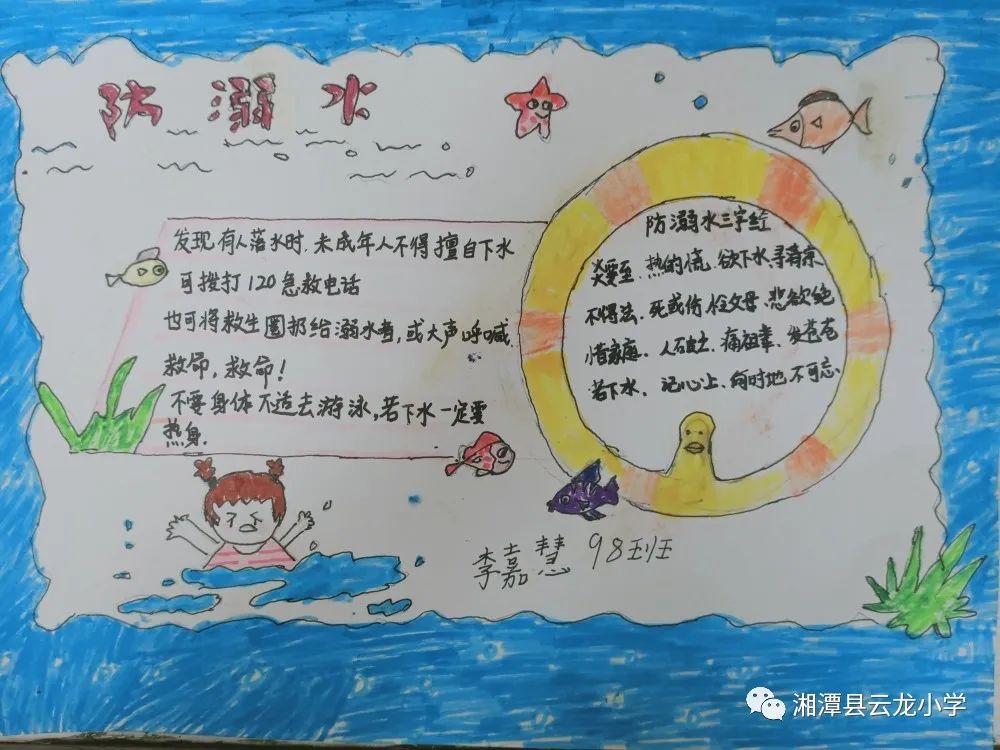 防溺水
发现有人落水时.未成年人不得擅自下水
可拨打120急救电话
也可将救生圈扔给溺水者,或大声呼喊.
救命,救命!
不要身体不适去游泳,若下水一定要
热身.
防溺水三字经
炎夏至.热的慌.欲下水.寻清凉
不得法.死或伤.父母.悲欲绝
惜家庭.痛祖辈.发苍苍
若下水.记心上.向时地不可忘
李嘉慧 98班
湘潭县云龙小学